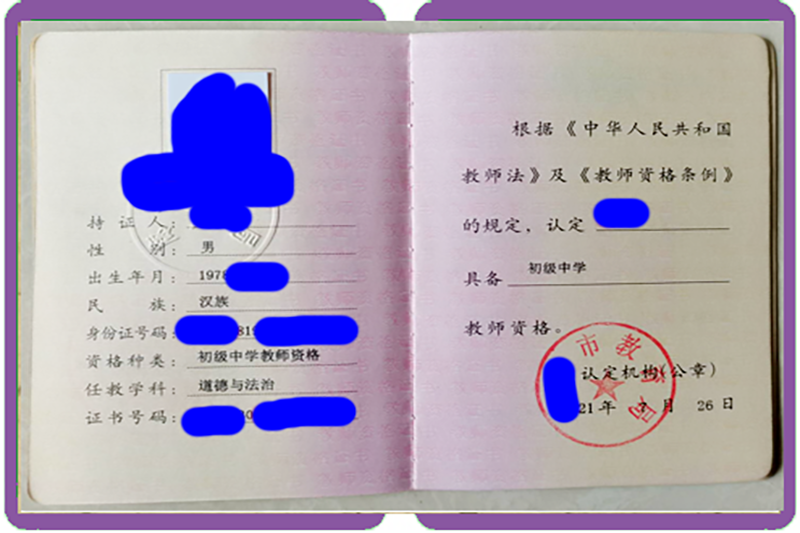 持证人：
性别：男
出生年月：1978
民族：汉族
身份证号码：819
资格种类：初级中学教师资格
任教学科：道德与法治
证书号码：
根据《中华人民共和国
教师法》及《教师资格条例》
的规定，认定
具备 初级中学
教师资格。
市教育局
认定机构(公章)
21年 7月 26日